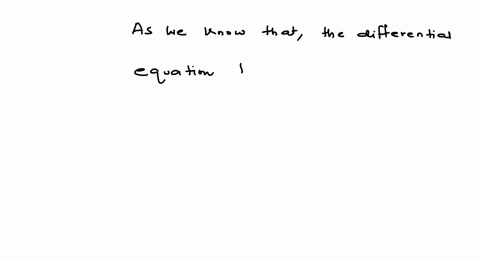 As we know that, the differential
equation